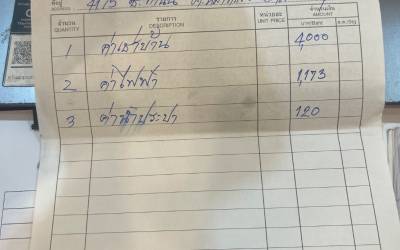 ที่อยู่
ADDRESS
จำนวน รายการ หน่วยละ จำนวนเงิน
QUANTITY DESCRIPTION UNIT PRICE AMOUNT
1 ค่าเช่าบ้าน 4,000
2 ค่าไฟฟ้า 1,173
3 ค่าน้ำประปา 120